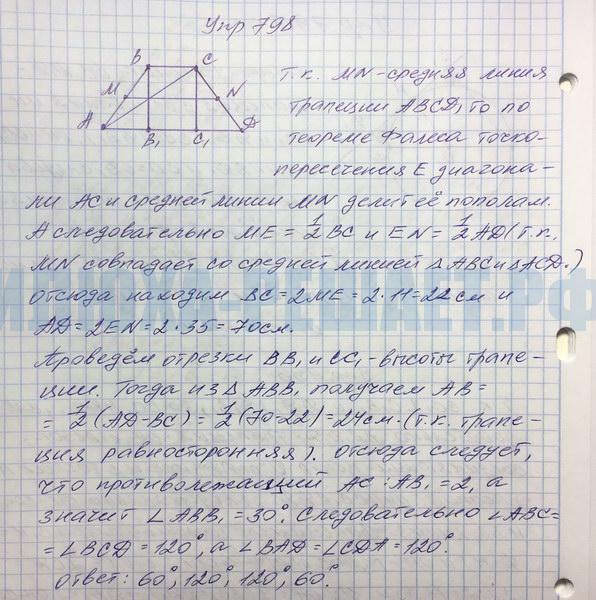 Упр 798
В С
M N
А В₁ С₁ D
т.к. MN-средняя линия
трапеции ABCD, то по
теореме Фалеса точко-
пересечения Е диагона-
ли АС и средней линии MN делит её пополам.
А следовательно ME = 1/2 BC и EN = 1/2 AD (т.к.
MN совпадает со средней линией ΔABC и ΔACD.)
отсюда находим BC = 2ME = 2·11 = 22 см и
AD = 2EN = 2·35 = 70см.
Проведём отрезки BB₁ и CC₁ - высоты трапе-
ции. Тогда из ΔABB₁ получаем AB =
= 1/2 (AD-BC) = 1/2 (70-22) = 24см. (т.к. трапе-
ция равносторонняя). отсюда следует,
что противолежащий AC : AB₁ = 2, а
значит ∠ABB₁ = 30°. Следовательно ∠ABC =
= ∠BCD = 120°, а ∠BAD = ∠CDA = 120°.
ответ: 60°, 120°, 120°, 60°.